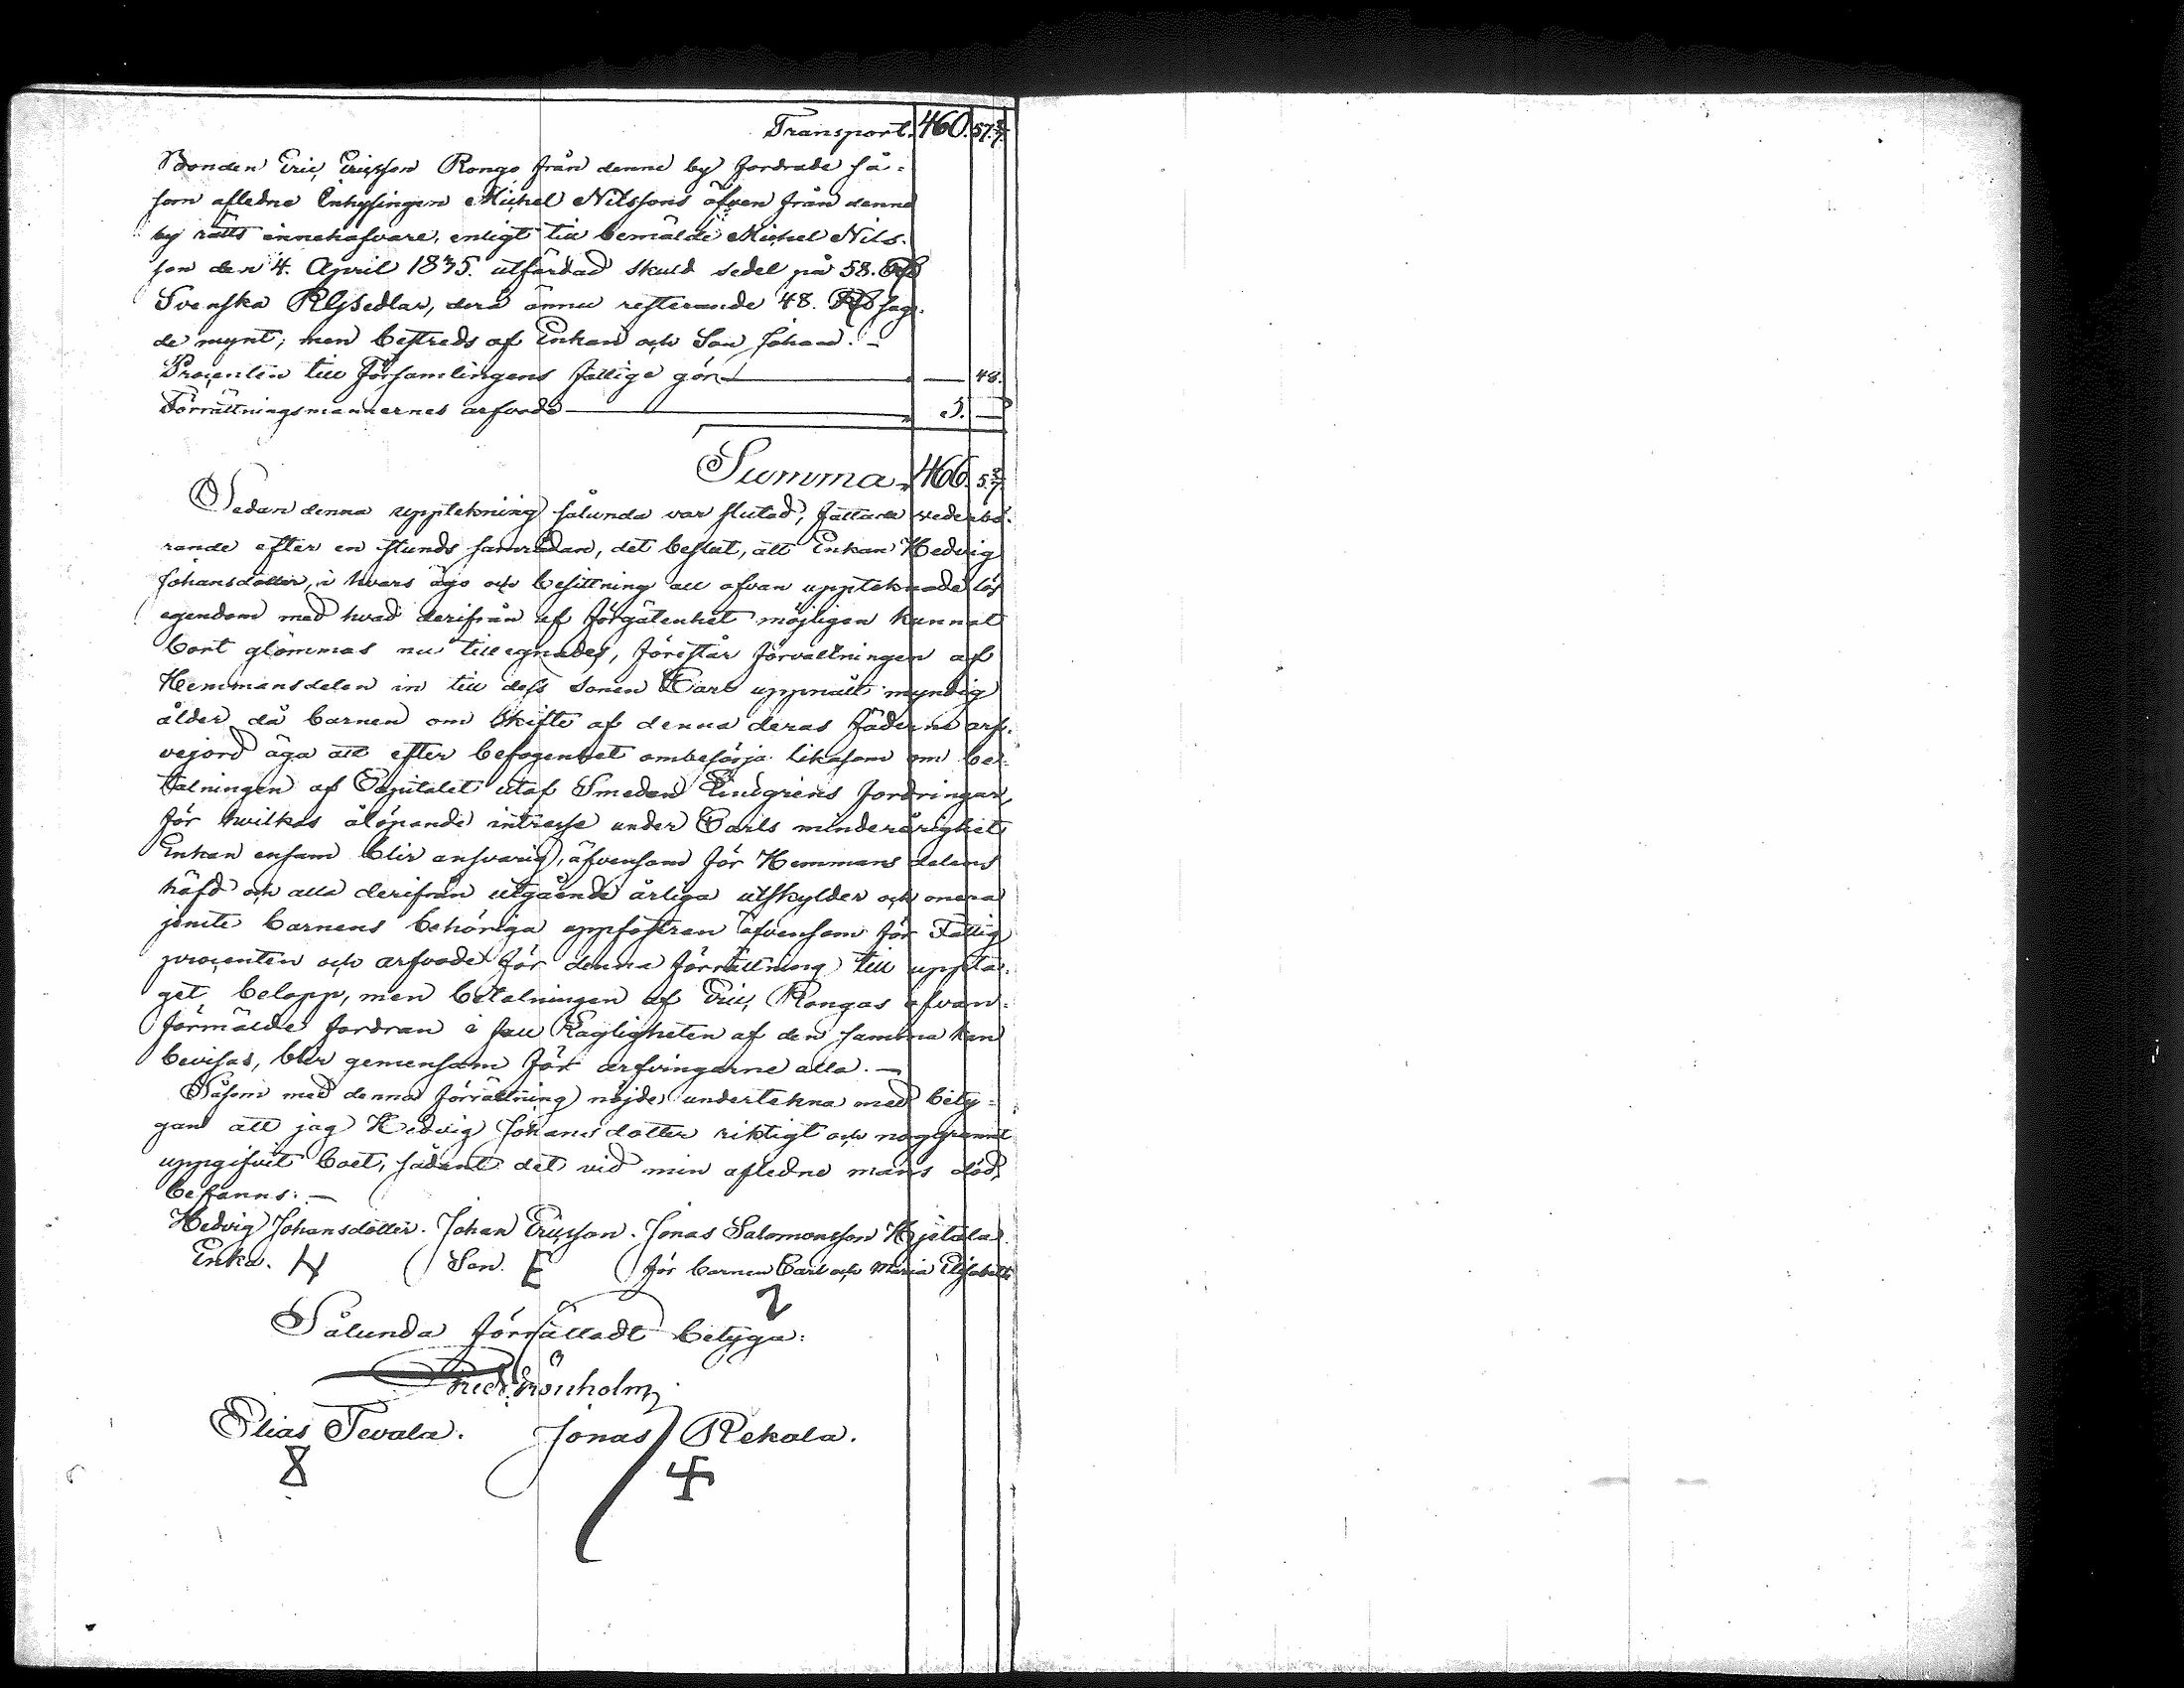 Transport. 460. 57 2/7
Bonden Eric Ericsson Rongo från denne by fordrade så-
som aflidne Inhysingen Michel Nilssons äfven från denne
by rätts innehafvare, enligt till bemälde Michel Nils-
son den 4. April 1835. utfärdad skuld sedel på 58. Rd
Svenska RGsedlar, derå ännu resterande 48. Rd sag-
de mynt; men bestreds af Enkan och Son Johan. —
Procenten till Församlingens fattige gör — — 48.
Förrättningsmannernes arfvode — 5. —
Summa. 466. 5 2/7
Sedan denna uppteckning sålunda var slutad, fattade vederbö-
rande efter en stunds samrådan, det beslut, att Enkan Hedvig
Johansdotter, i hvars ägo och besittning all ofvan upptecknade lös
egendom med hvad derifrån af förgätenhet möjligen kunnat
bort glömmas nu tillegnades, förestår förvaltningen af
Hemmansdelen in till dess sonen Carl uppnått myndig
ålder då barnen om skifte af denna deras fäderne arf-
vejord äga att efter befogenhet ombesörja likasom om be-
talningen af Capitalet utaf Smeden Lindgrens fordringar,
för hvilkas ålöpande intresse under Carls minderårighet
Enkan ensam blir ansvarig, äfvensom för Hemmans delens
häfd och alla derifrån utgående årliga utskylder och onera
jemte barnens behöriga uppfostran äfvensom för Fattig
procenten och arfvodet för denna förrättning till uppta-
get belopp, men betalningen af Eric Rongas ofvan-
förmälde fordran i fall lagligheten af den samma kan
bevisas, blir gemensam för arfvingarne alla. —
Såsom med denna förrättning nöjde undertekna med bety-
gan att jag Hedvig Johansdotter riktigt och noggrannt
uppgifvit boet, sådant det vid min aflidne mans död
befanns: —
Hedvig Johansdotter. Johan Ericsson. Jonas Salomonsson Hjelala
Enka. Son. för barnen Carl och Maria Elisabeth
Sålunda förrättadt betyga:
Elias Tevala. Jonas Rekala.